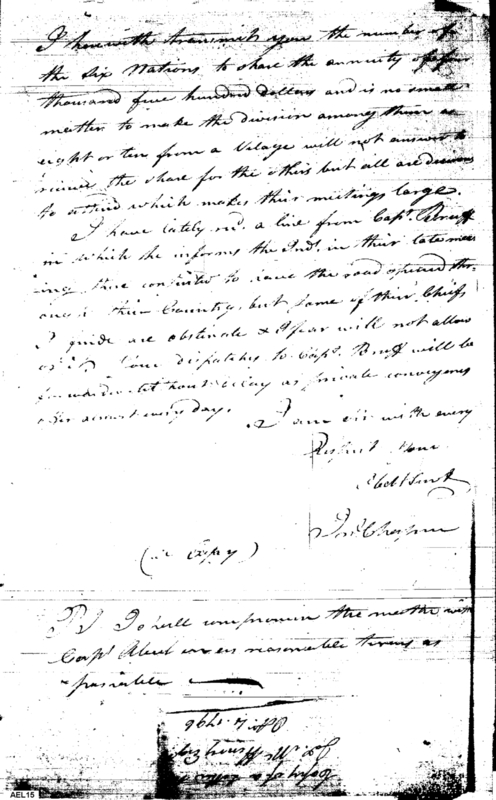 I herewith transmit you the number of
the Six Nations to share the annuity of four
thousand five hundred dollars and is no small
matter to make the division among them as
eight or ten from a Vilage will not answer to
receive the share for the others but all are
to attend which makes their meetings large.
I have lately rec. a line from Capt. Bruff
in which he informs the Ind. in their late meet
ing have consented to have the road opened thr
ough their Country, but some of their Chiefs
I guide are obstinate & I fear will not allow
of it. Your dispatches to Capt. Bruff will be
forwarded without delay as private conveyances
offer almost every day.
I am Sir with every
Respect Your
Obdt Servt
Chapin
(a Copy)
PS I shall compromise the matter with
Capt. Abeel on as reasonable terms as
possible
1796
Copy of a letter
AEL15